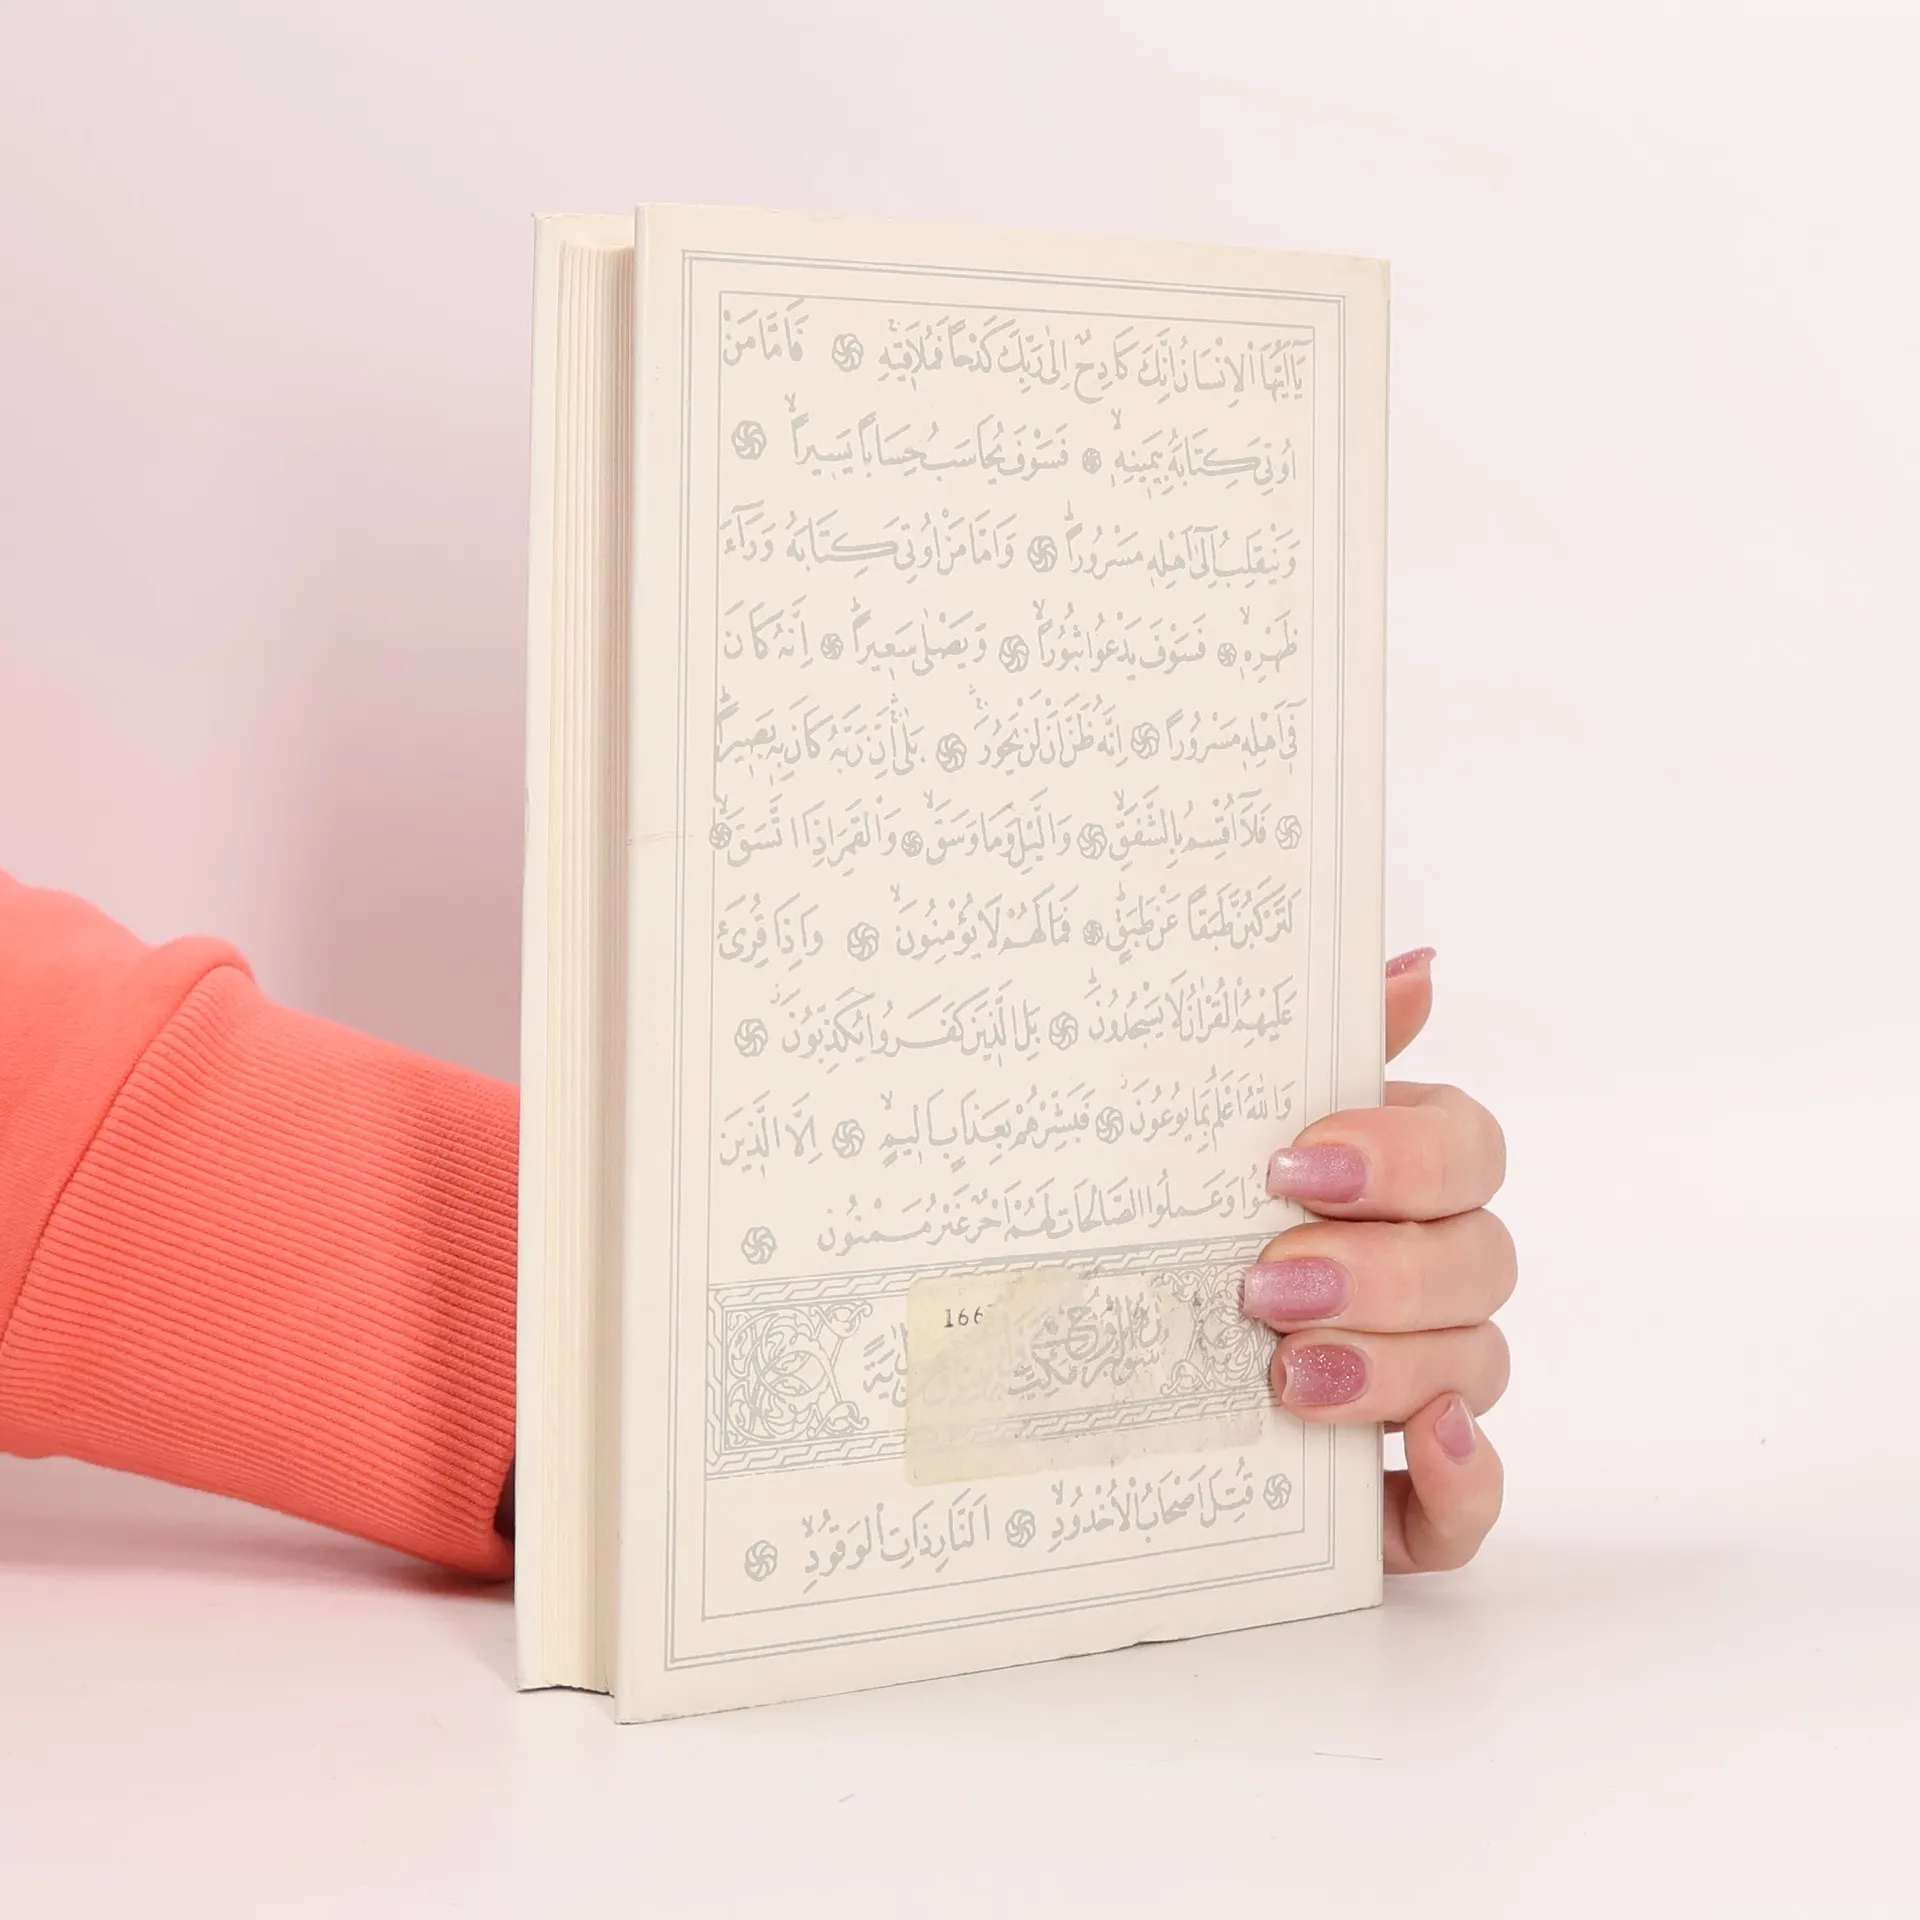 يَآاَيُّهَا الْاِنْسَانُ اِنَّكَ كَادِحٌ اِلٰى رَبِّكَ كَدْحًا فَمُلَاقِيهِۚ فَاَمَّا مَنْ
اُوتِيَ كِتَابَهُ بِيَمِينِهِۙ فَسَوْفَ يُحَاسَبُ حِسَابًا يَسِيرًاۙ
وَيَنْقَلِبُ اِلٰٓى اَهْلِهِ مَسْرُورًاۜ وَاَمَّا مَنْ اُوتِيَ كِتَابَهُ وَرَآءَ
ظَهْرِهِۙ فَسَوْفَ يَدْعُوا ثُبُورًاۙ وَيَصْلٰى سَعِيرًاۜ اِنَّهُ كَانَ
فِٓي اَهْلِهِ مَسْرُورًا اِنَّهُ ظَنَّ اَنْ لَنْ يَحُورَۚ بَلٰىۚ اِنَّ رَبَّهُ كَانَ بِهِ بَصِيرًاۜ
فَلَآ اُقْسِمُ بِالشَّفَقِۙ وَالَّيْلِ وَمَا وَسَقَۙ وَالْقَمَرِ اِذَا اتَّسَقَۙ
لَتَرْكَبُنَّ طَبَقًا عَنْ طَبَقٍۜ فَمَا لَهُمْ لَا يُؤْمِنُونَۙ وَاِذَا قُرِئَ
عَلَيْهِمُ الْقُرْاٰنُ لَا يَسْجُدُونَۜ بَلِ الَّذِينَ كَفَرُوا يُكَذِّبُونَۘ
وَاللّٰهُ اَعْلَمُ بِمَا يُوعُونَۘ فَبَشِّرْهُمْ بِعَذَابٍ اَلِيمٍۙ اِلَّا الَّذِينَ
وَعَمِلُوا الصَّالِحَاتِ لَهُمْ اَجْرٌ غَيْرُ مَمْنُونٍ
166
قُتِلَ اَصْحَابُ الْاُخْدُودِۙ اَلنَّارِ ذَاتِ الْوَقُودِۙ